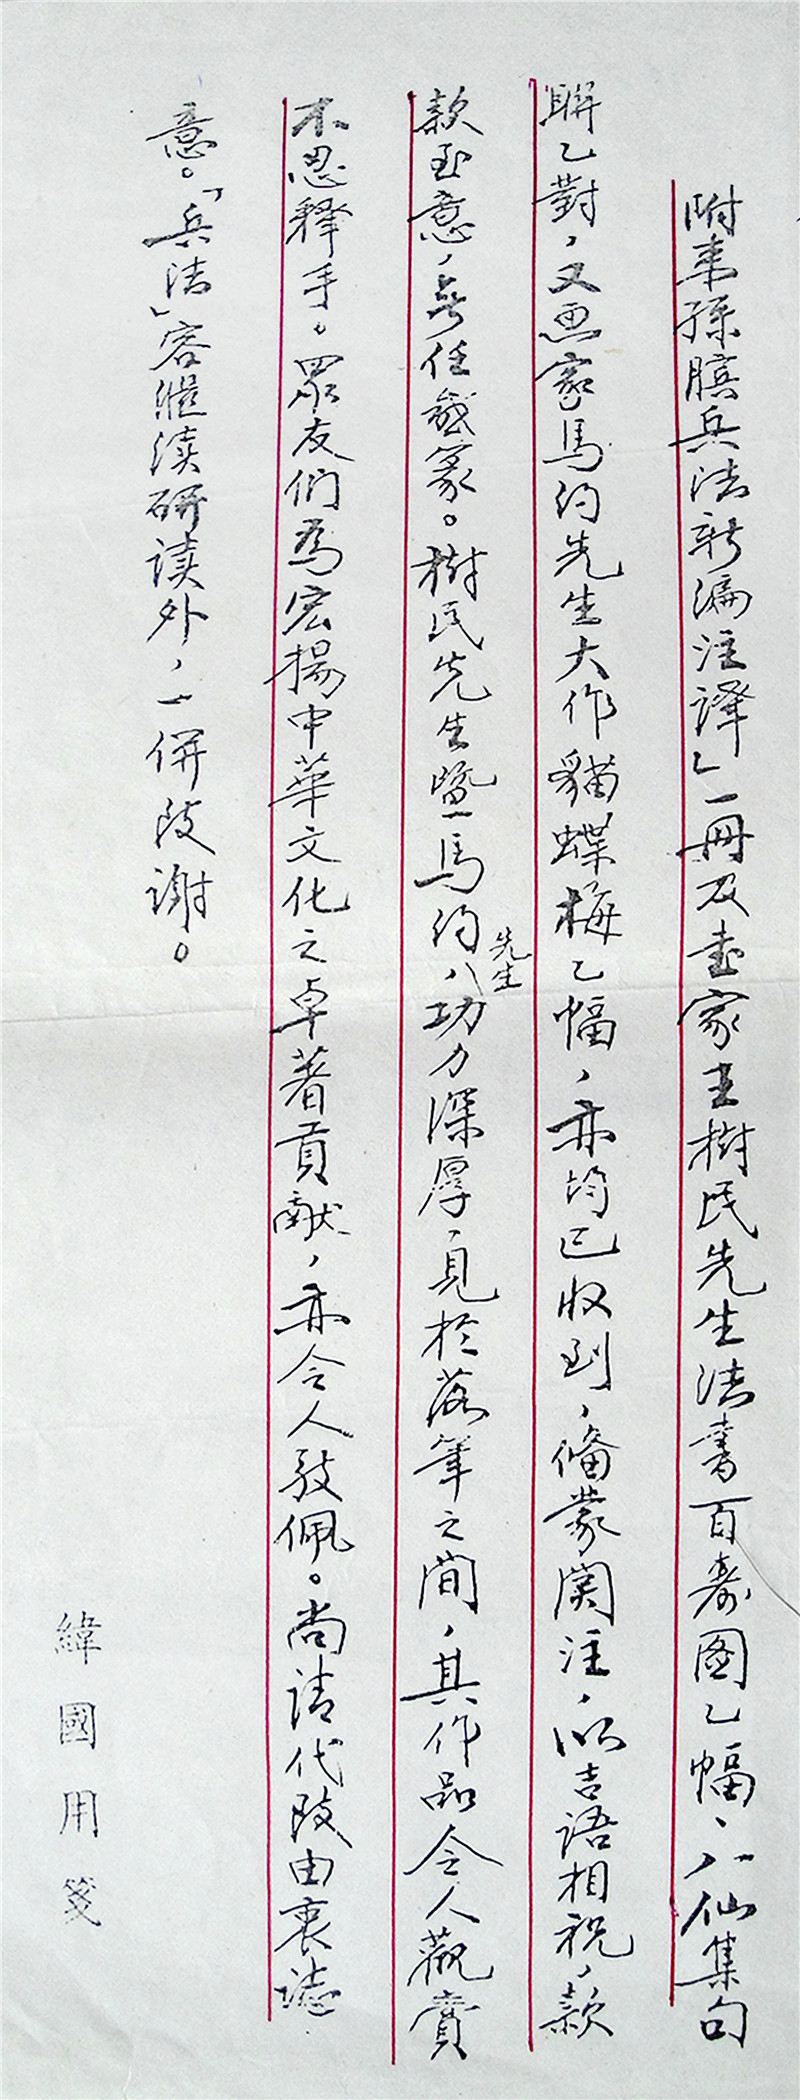 附来孫臏兵法新编注譯」一冊及书家王樹民先生法書百寿图乙幅、八仙集句
聯乙對，又画家馬約先生大作貓蝶梅乙幅，亦均已收到，備蒙関注，以吉语相祝，款
款至意，無任感篆。樹民先生暨馬約先生八功力深厚，見於落筆之间，其作品令人觀賞
不忍释手。眾友们為宏揚中華文化之卓著貢献，亦令人敬佩。尚请代致由衷誌
意。「兵法」容繼续研读外，一併致谢。
緯國用箋